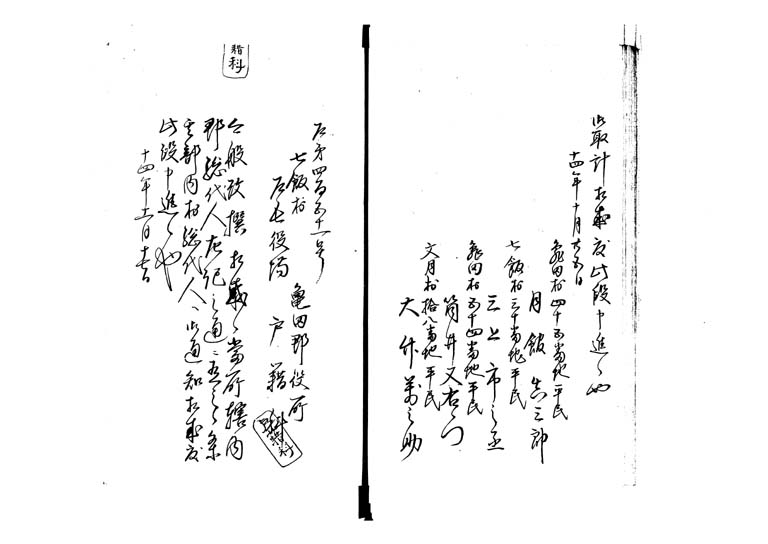 御取計相成度此段申進候也
十四年十月廿五日
亀田村四十五番地平民
月館（三郎
七飯村三十番地平民
三上市之丞
亀田村五十四番地平民
筒井又右衛門
文月村拾八番地平民
大竹萬之助
戸第四百五十一号
亀田郡役所
七飯村
戸長役場
戸籍
今般改撰相成候当所轄内
郡総代人左記之通ニ有之候条
其部内村総代人へ御通知相成度
此段申進候也
十四年十一月十七日
籍科